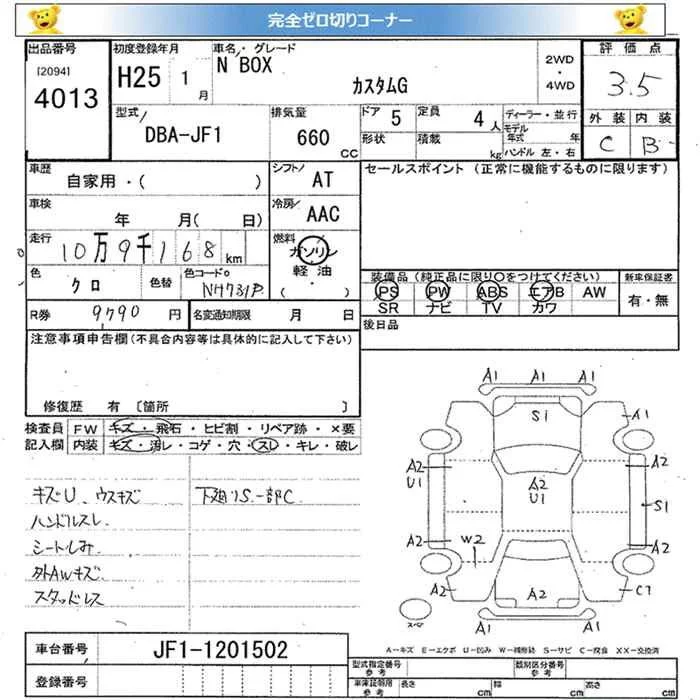 完全ゼロ切りコーナー
出品番号 初度登録年月 車名・グレード 評価点
[2094] 4013 H25 1月 N BOX カスタムG 2WD・4WD 3.5
型式 DBA-JF1 排気量 660 CC ドア 5 定員 4人 ディーラー・並行 外装 内装
形状 積載 kg モデル年式 年 ハンドル 左・右 C B
車歴 自家用・( ) シフト AT セールスポイント (正常に機能するものに限ります)
車検 年 月( 日) 冷房 AAC
走行 10万9千168km 燃料 ガソリン 軽油 ( ・ )
色 クロ 色替 色コードNo NH731P 装備品 (純正品に限り○をつけてください) 新車保証書
PS PW ABS エアB AW 有・無
SR ナビ TV カワ
R券 9790円 名変通知期限 月 日 後日品
注意事項申告欄(不具合内容等は具体的に記入して下さい)
修復歴 有 〔箇所 〕
検査員 FW キズ・飛石・ヒビ割・リペア跡・×要
記入欄 内装 キズ・汚レ・コゲ・穴・スレ・キレ・破レ
キズU、ウスキズ 下廻りS、一部C
ハンドルスレ
シートしみ
外AWキズ
スタッドレス
A1 A1 A1
S1 A1
A2 U1 A2 U1 A2
S1
A2 W2 A2
A2 A2 C1
スペア A1 A1
A-キズ E-エクボ U-凹み W-補修跡 S-サビ C-腐食 XX-交換済
車台番号 JF1-1201502
登録番号
型式指定番号 参考 類別区分番号 参考
車庫証明用 参考 長さ cm 幅 cm 高さ cm